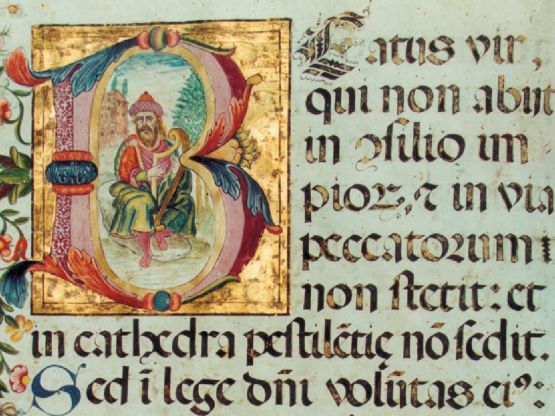 BEatus vir,
qui non abijt
in ꝯsilio im
pioꝝ, ⁊ in via
peccatorum
non stetit: et
in cathedra pestilẽtię nõ sedit.
Sed ĩ lege dñi volũtas eiꝰ: